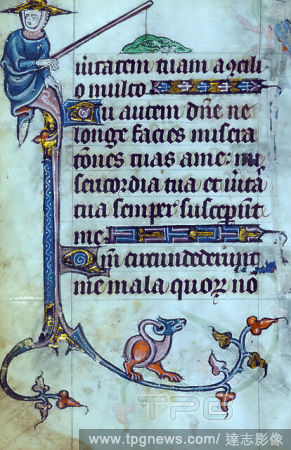 ũitatem tuam a ꝯcili
o multo.
Tu autem dñe ne
longe facies misera
tiones tuas a me: mi
sericordia tua et ũitas
tua semper susceperũt
me.
Qm̃ circũdederunt
me mala quoꝝ no
TPG
www.tpgnews.com / 達志影像